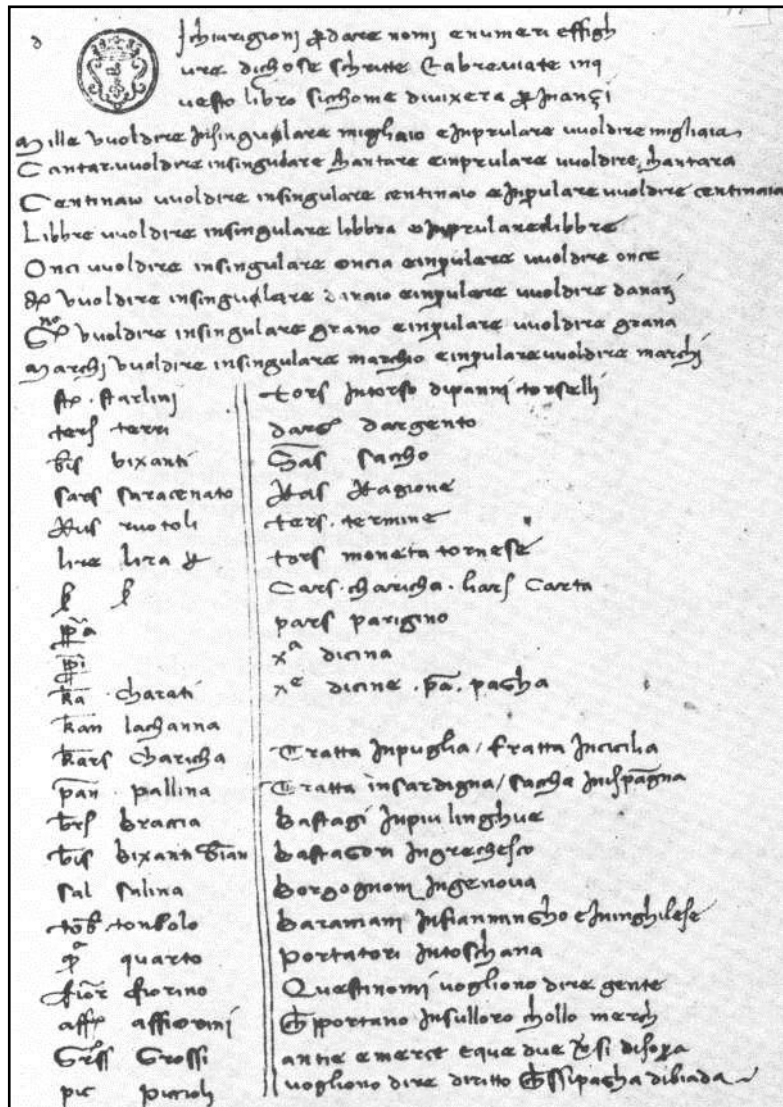 Ichiurigioni p dare nomi e numeri effigh
ure dichose schritte Eabreviate inq
uesto libro sicchome divixera p Inançi
Mille vuoldire Insingulare migliaio e Inprulare vuoldire migliaia
Cantar vuoldire insingulare chantare einprulare vuoldire chantara
Centinaio vuoldire insingulare centinaio e Inpulare vuoldire centinaia
Libbre vuoldire insingulare libbra e Inprulare libbre
Onci vuoldire insingulare oncia einpulare vuoldire once
vuoldire insingulare danaio einpulare vuoldire danari
vuoldire insingulare grano einpulare vuoldire grana
Marchi vuoldire insingulare marchio einpulare vuoldire marchi
starlini
terri
bis bixanti
sars saracenato
ruotoli
lire lira
ka charati
kan lachanna
kars charicha
pan pallina
braccia
bis bixanti
sal salina
tob tonbolo
quarto
fior fiorino
aff affiorini
Grossi
pic piccioli
tors Intorso dipanni torselli
darg dargento
Sas saccho
Ras Ragione
ters termine
tors moneta tornese
Cars charicha Carta
pars parigino
xª dicina
xᵉ dicine pa pagha
Tratta Inpuglia / tratta Incicilia
Tratta insardigna / saccha Inispagna
Bastagi Inpiu linghue
Bastagori Ingrechesco
Borgognoni Ingenova
Infiamingho e Ininghilese
Portatori Intoschana
Questi nomi vogliono dire gente
portano Insulloro chollo merch
antie e merce e que due disopra
vogliono dire diritto chessipagha dibiada